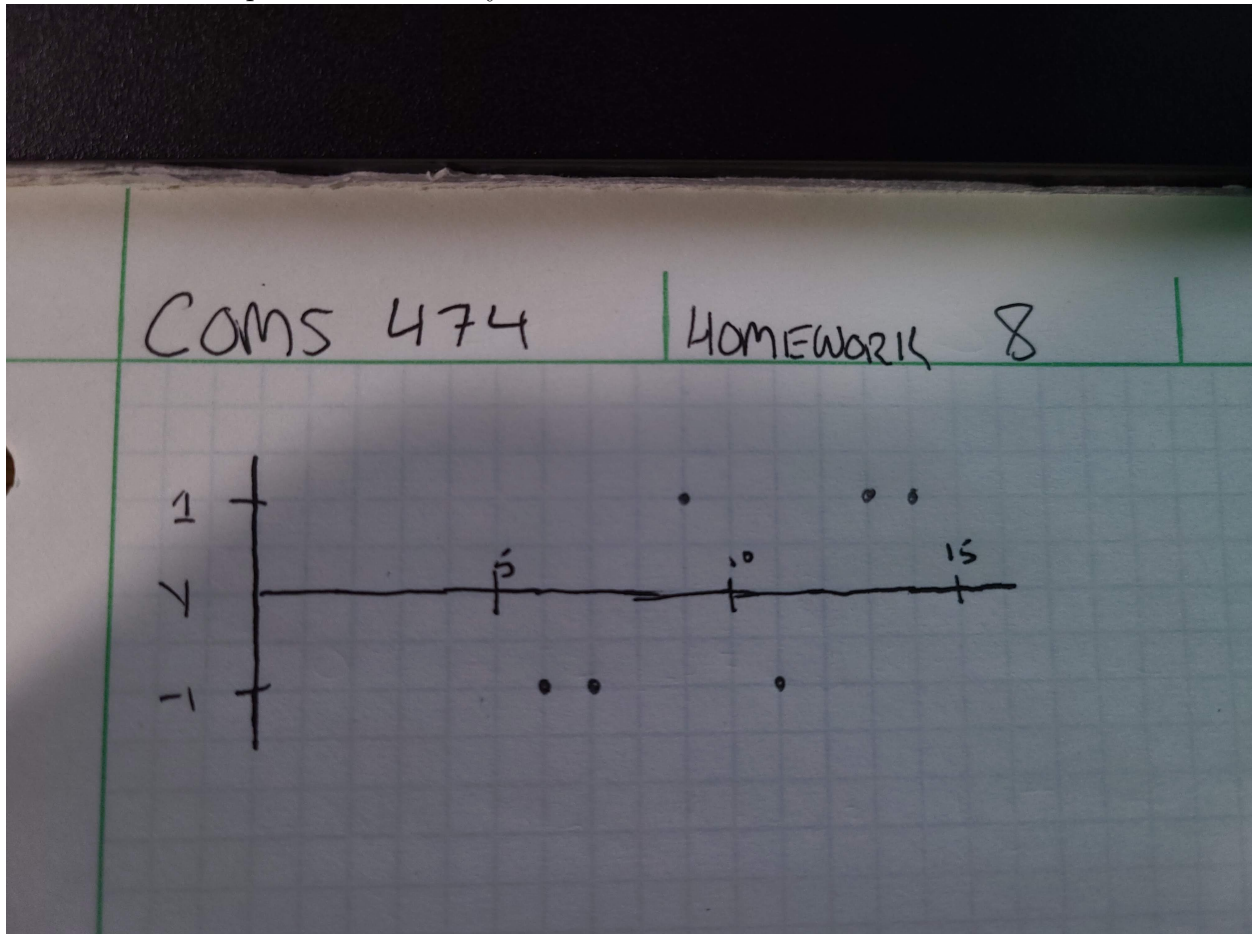 COMS 474 HOMEWORK 8
1
5 10 15
Y
-1